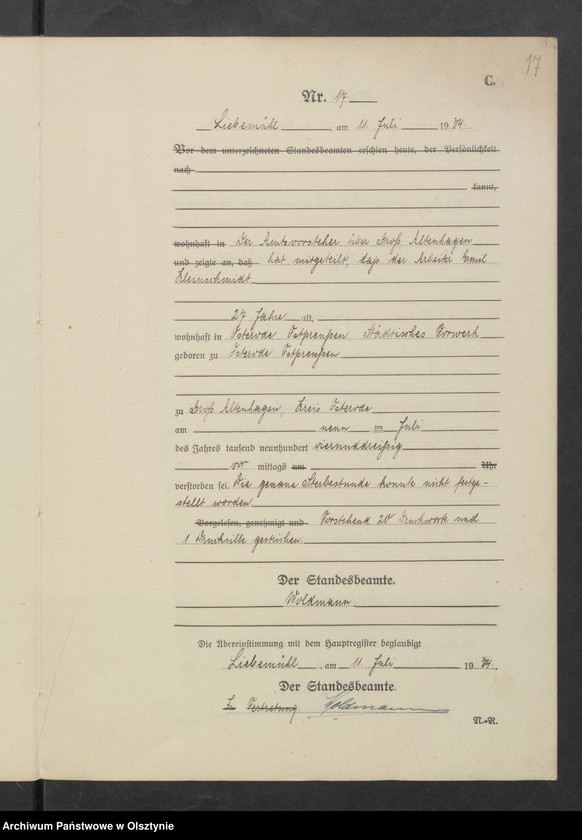 17
C.
Nr. 17
Liebemühl, am 11. Juli 1934.
Vor dem unterzeichneten Standesbeamten erschien heute, der Persönlichkeit
nach
kannt,
wohnhaft in Der Amtsvorsteher über Groß Altenhagen
und zeigte an, daß hat mitgeteilt, daß der Arbeiter Emil
Kleinschmidt
27 Jahre alt,
wohnhaft in Osterode Ostpreußen, Städtisches Vorwerk
geboren zu Osterode Ostpreußen
zu Groß Altenhagen, Kreis Osterode
am neun ten Juli
des Jahres tausend neunhundert vierunddreißig
vor mittags um Uhr
verstorben sei. Die genaue Sterbestunde konnte nicht festge-
stellt werden.
Vorgelesen, genehmigt und Vorstehend 20 Druckworte und
1 Drucksilbe gestrichen.
Der Standesbeamte.
Woldmann
Die Übereinstimmung mit dem Hauptregister beglaubigt
Liebemühl, am 11. Juli 1934.
Der Standesbeamte.
In Vertretung. Woldmann
N.-R.
Archiwum Państwowe w Olsztynie